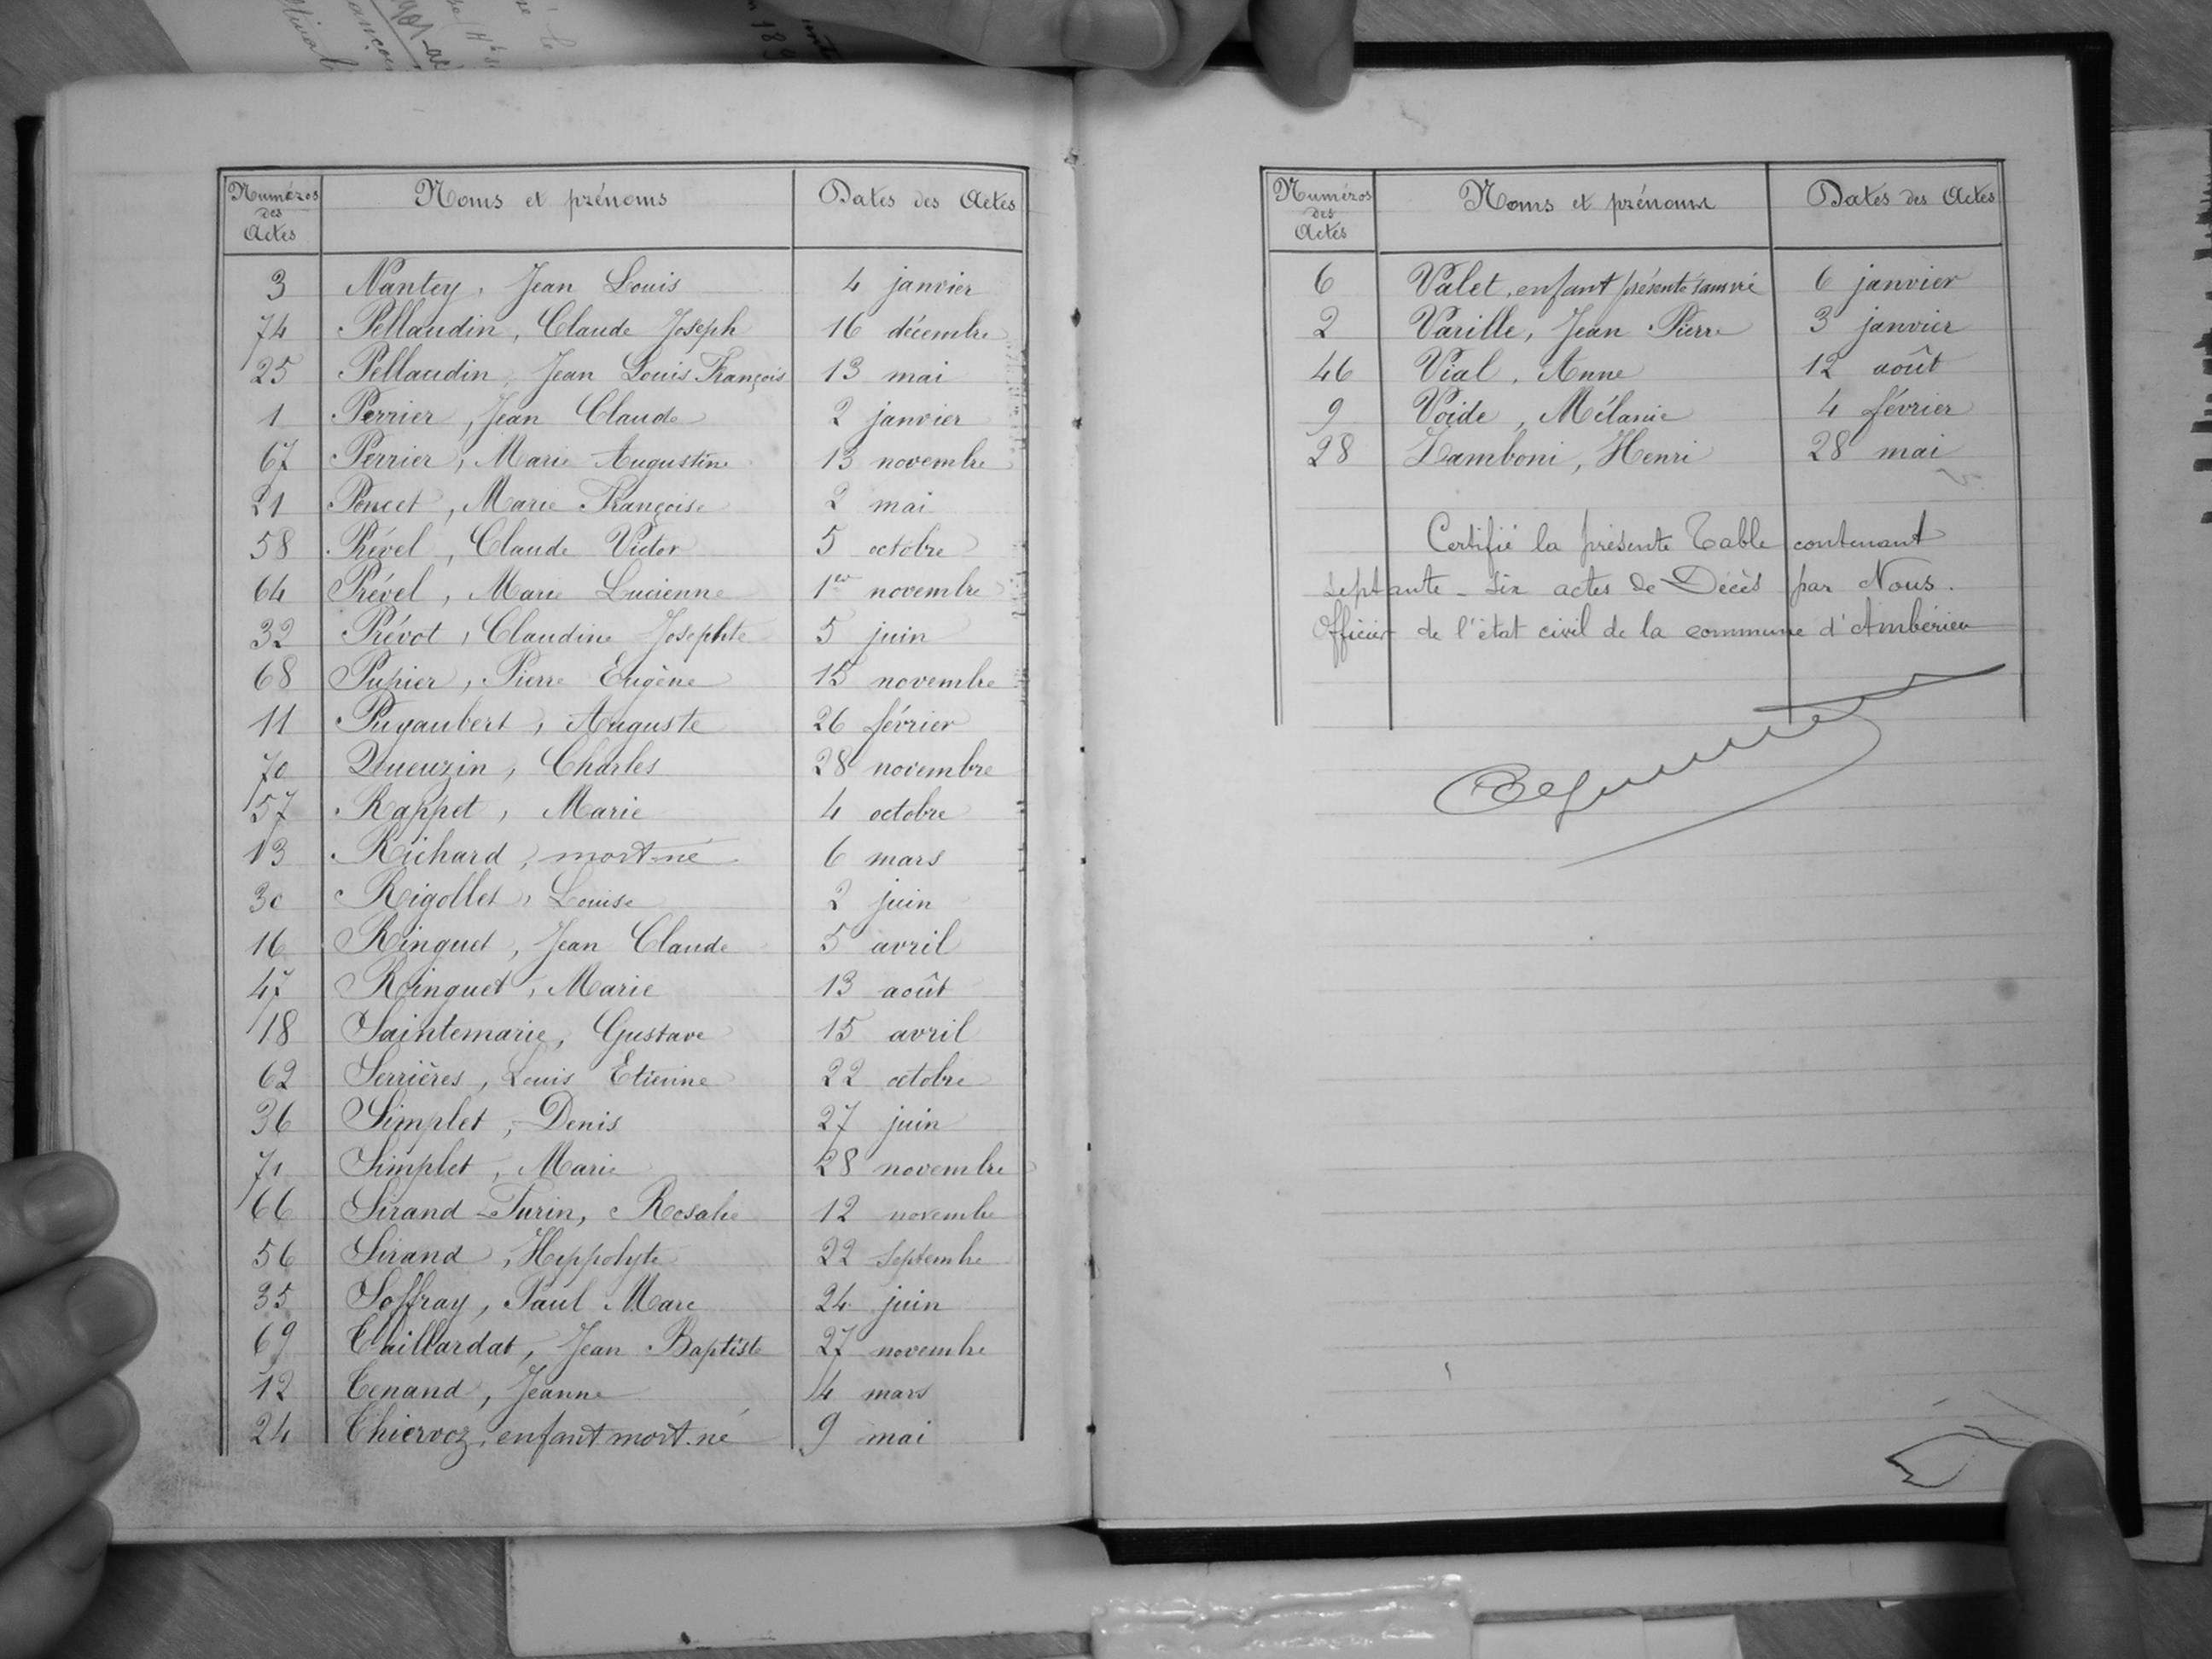 Numéros
des
Actes
Noms et prénoms
Dates des Actes
3 Nantey, Jean Louis 4 janvier
74 Pellaudin, Claude Joseph 16 décembre
25 Pellaudin, Jean Louis François 13 mai
1 Perrier, Jean Claude 2 janvier
67 Perrier, Marie Augustine 13 novembre
21 Poncet, Marie Françoise 2 mai
58 Prével, Claude Victor 5 octobre
64 Prével, Marie Lucienne 1er novembre
32 Prévot, Claudine Josephte 5 juin
68 Pupier, Pierre Eugène 15 novembre
11 Puyaubert, Auguste 26 février
70 Queuzin, Charles 28 novembre
57 Rappet, Marie 4 octobre
13 Richard, mort-né 6 mars
30 Rigollet, Louise 2 juin
16 Ringuet, Jean Claude 5 avril
47 Ringuet, Marie 13 août
18 Saintemarie, Gustave 15 avril
62 Serrières, Louis Etienne 22 octobre
36 Simplet, Denis 27 juin
71 Simplet, Marie 28 novembre
66 Sirand-Turin, Rosalie 12 novembre
56 Sirand, Hippolyte 22 septembre
35 Soffray, Paul Marc 24 juin
69 Taillardat, Jean Baptiste 27 novembre
12 Tenand, Jeanne 4 mars
24 Thiervoz, enfant mort-né 9 mai
Numéros
des
Actes
Noms et prénoms
Dates des Actes
6 Valet, enfant présenté sans vie 6 janvier
2 Varille, Jean Pierre 3 janvier
46 Vial, Anne 12 août
9 Voide, Mélanie 4 février
28 Zamboni, Henri 28 mai
Certifié la présente Table contenant
septante-six actes de Décès par Nous.
Officier de l'état civil de la commune d'Ambérieu